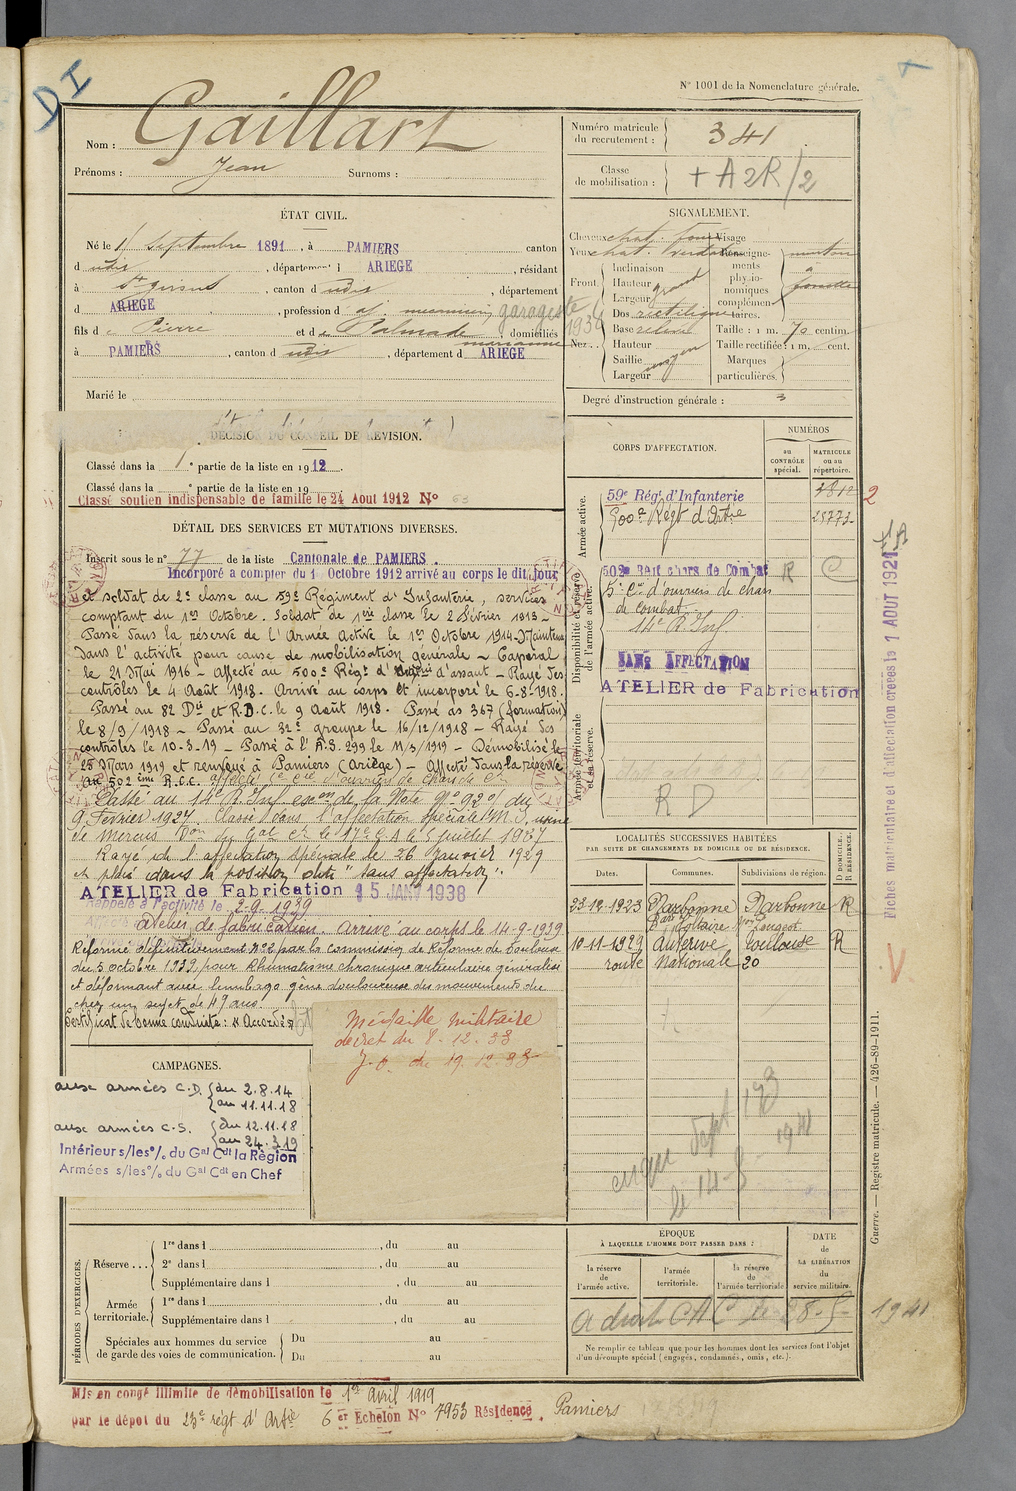 DI
N° 1001 de la Nomenclature générale.
Nom : Gaillart
Prénoms : Jean Surnoms :
Numéro matricule du recrutement : 341
Classe de mobilisation : + A 2R/2
ÉTAT CIVIL.
Né le 15 septembre 1891, à PAMIERS canton
d udis, département d ARIEGE, résidant
à St girons, canton d udis, département
d ARIEGE, profession d aj. mecanicien garagiste 1936
fils de Pierre et de Palmade marianne, domiciliés
à PAMIERS, canton d udis, département d ARIEGE
Marié le
SIGNALEMENT.
Cheveux chat. foncé Visage
Yeux chat. verdâtre Renseignements physionomiques complémentaires. menton à fossette
Front. Inclinaison
Hauteur grand
Largeur
Nez. Dos rectiligne
Base relevé Taille : 1 m. 70 centim.
Hauteur Taille rectifiée : 1 m. cent.
Saillie moyen Marques
Largeur particulières.
Degré d'instruction générale : 3
DÉCISION DU CONSEIL DE REVISION.
Classé dans la 1e partie de la liste en 1912.
Classé dans la e partie de la liste en 19
Classé soutien indispensable de famille le 24 Aout 1912 N° 63
DÉTAIL DES SERVICES ET MUTATIONS DIVERSES.
Inscrit sous le n° 77 de la liste Cantonale de PAMIERS.
Incorporé a compter du 1 Octobre 1912 arrivé au corps le dit jour
et soldat de 2e classe au 59e Régiment d'Infanterie, services
comptant du 1er Octobre. Soldat de 1ère classe le 2 Février 1913 –
Passé dans la réserve de l'Armée Active le 1er Octobre 1914. Maintenu
dans l'activité pour cause de mobilisation générale – Caporal
le 21 Mai 1916 – Affecté au 500e Régt d' d'assaut – Rayé des
contrôles le 4 Août 1918. Arrivé au corps et incorporé le 6-8-1918.
Passé au 82 Dit et R.D.C. le 9 août 1918. Passé as 367 (formation)
le 8/9/1918 – Passé au 32e groupe le 16/12/1918 – Rayé des
contrôles le 10-3-19 – Passé à l'A.S. 299 le 11/3/1919 – Démobilisé le
25 Mars 1919 et renvoyé à Pamiers (Ariège) – Affecté dans la réserve
au 502ème R.C.C. affecté 5e Cie d'ouvriers de chars de Ct
Passé au 14e R. Inf. exon de la Note N° 920/ du
9 Février 1927. Classé dans l'affectation spéciale P.M.J. usine
de Mercus Don du Gal Ct le 17e C.A le 5 juillet 1937
Rayé de l'affectation spéciale le 26 Janvier 1929
et placé dans la position dite "sans affectation".
ATELIER de Fabrication 15 JANV 1938
Rappelé à l'activité le 2-9-1939
Atelier de fabrication. Arrivé au corps le 14-9-1939.
Réformé définitivement N°2 par la commission de Réforme de Toulouse
du 5 octobre 1939, pour Rhumatisme chronique articulaire généralisé
et déformant avec lumbago gêne douloureuse des mouvements du
chez un sujet de 49 ans.
Certificat de bonne conduite : "Accordé"
Médaille militaire
décret du 8.12.33
J.O. du 19.12.33
CAMPAGNES.
aux armées C.D. { du 2.8.14
au 11.11.18
aux armées C.S. { du 12.11.18
au 24.3.19
Intérieur s/les o/. du Gal Cdt la Région
Armées s/les o/. du Gal Cdt en Chef
CORPS D'AFFECTATION.
NUMÉROS
au CONTRÔLE spécial.
MATRICULE ou au répertoire.
Armée active.
59e Régt d'Infanterie 3812
500e Régt d'Artie 25773
2
Disponibilité et réserve de l'armée active.
502e Regt chars de Combat R
5e Cie d'ouvriers de chars
de combat.
14e R. Inf
SANS AFFECTATION
ATELIER de Fabrication
Armée territoriale et sa réserve.
R D
LOCALITÉS SUCCESSIVES HABITÉES
PAR SUITE DE CHANGEMENTS DE DOMICILE OU DE RÉSIDENCE.
Dates. Communes. Subdivisions de région. D DOMICILE. R RÉSIDENCE.
23-12-1923 Narbonne Narbonne R
Bard Voltaire Mon Peugeot
10-11-1929 Auterive Toulouse R
route Nationale 20
le 14-5-1941
Fiches matriculaire et d'affectation créées le 1 AOUT 1921.
Guerre. — Registre matricule. — 426-89-1911.
PÉRIODES D'EXERCICES.
Réserve ... 1re dans l , du au
2e dans l , du au
Supplémentaire dans l , du au
Armée territoriale. 1re dans l , du au
Supplémentaire dans l , du au
Spéciales aux hommes du service de garde des voies de communication. Du au
Du au
ÉPOQUE
À LAQUELLE L'HOMME DOIT PASSER DANS :
la réserve de l'armée active.
l'armée territoriale.
la réserve de l'armée territoriale
DATE de LA LIBÉRATION du service militaire.
a droit CAC le 28-5-1941
Ne remplir ce tableau que pour les hommes dont les services font l'objet
d'un décompte spécial (engagés, condamnés, omis, etc.).
Mis en congé illimité de démobilisation le 1er Avril 1919
par le dépot du 23e régt d'Artie 6e Echelon N° 7953 Résidence. Pamiers